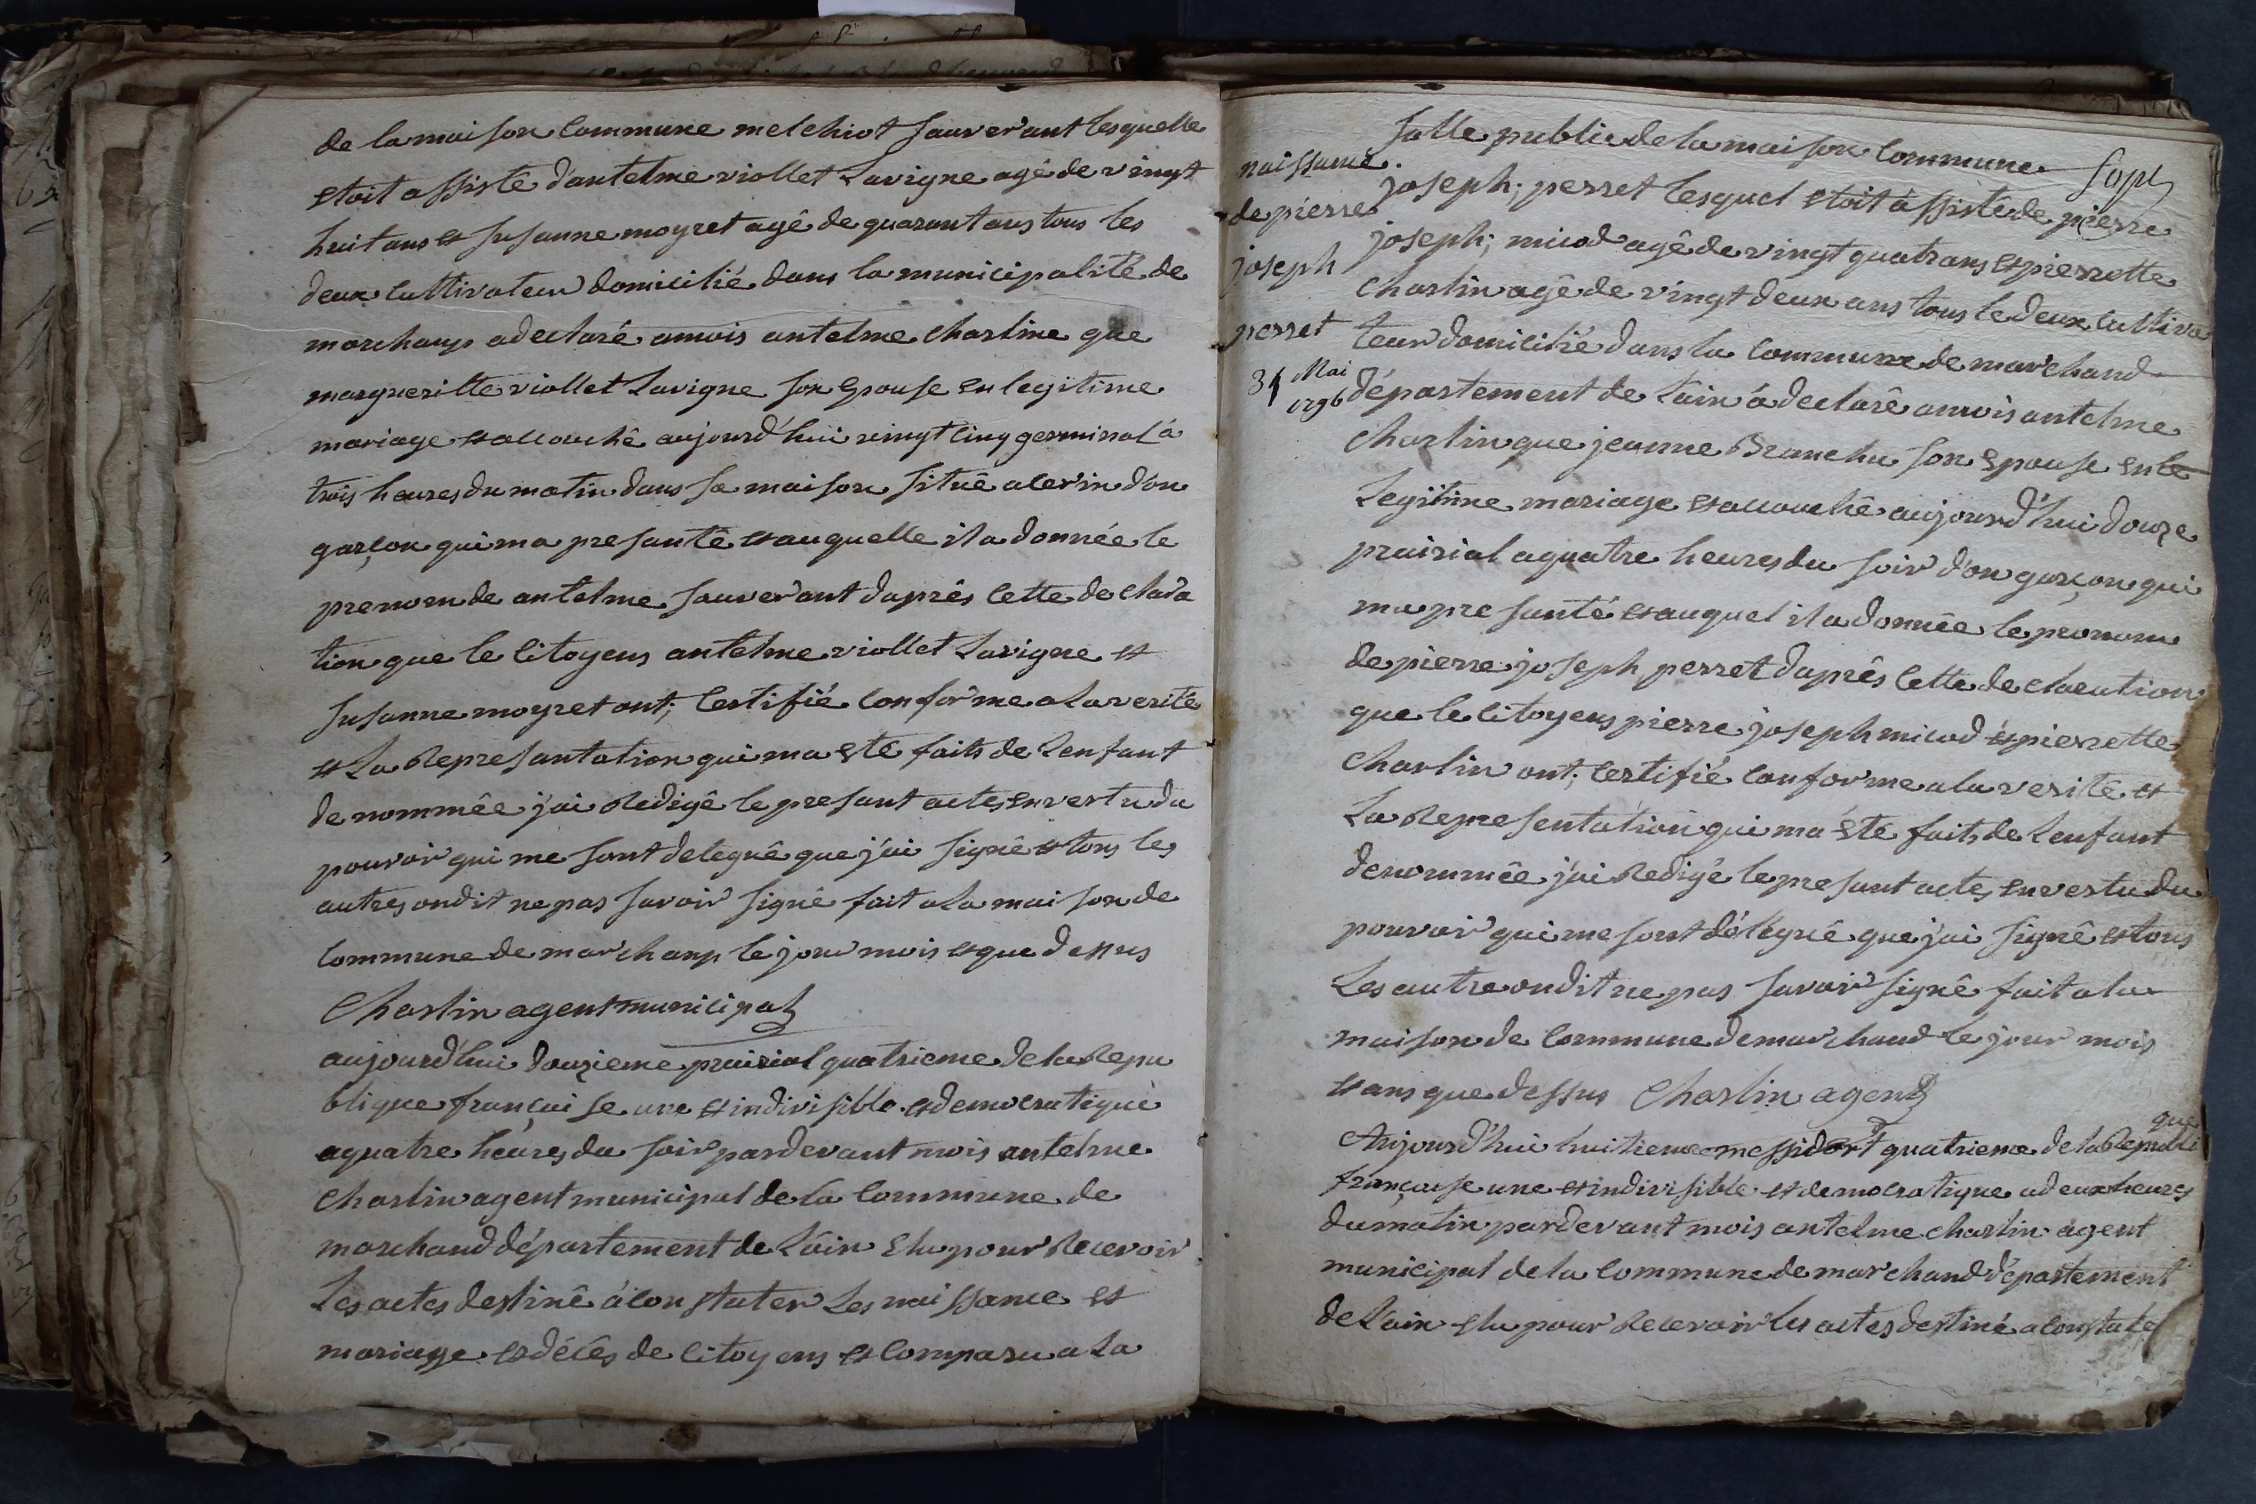 de la maison Commune melchiot Sauverant lesquelle
etoit assistê dantelme viollet Lavigne agé de vingt
huit ans et Susanne moyret agê de quarant ans tous les
deux Cultivateur domicilié dans la municipalité de
marchamp a declaré amois antelme Charline que
margueritte viollet Lavigne son Epouse en legitime
mariage et acouchê aujourd'hui vingt cinq germinal á
trois heures du matin dans sa maison situê a cerin d'on
garçon qui ma presantê et auquelle il a donnée le
prenom de antelme Sauverant daprês Cette declara
tion que le Citoyens antelme viollet Lavigne et
Susanne moyret ont; Certifié Conforme a La verité
et La Represantation qui ma eté faits de Lenfant
denommêe j'ai Redigê le presant actes en vertu du
pouvoir qui me sont deleguê que j'ai signê et tous les
autres ondit ne pas savoir signê fait a La maison de
Commune de marchamp le jour mois et que dessus
Charlin agent municipal
aujourd'hui douzieme prairial quatrieme de la Repu
blique française une et indivisible et democratique
a quatre heures du soir pardevant mois antelme
Charlin agent municipal de La Commune de
marchand département de Láin Elu pour Recevoir
Les actes destinê á Constater Les naissance et
mariage et décês de Citoyens et Comparu a La
Salle public de la maison Commune
joseph; perret lesquel etoit assisté de pierre
joseph; micod agê de vingt quatr ans et pierrette
Charlin agê de vingt deux ans tous le deux Cultiva
teur domicilié dans la Commune de marchand
département de Láin á declarê amois antelme
Charlin que jeanne Branchu son Epouse en le
Legitime mariage et acouchê aujourd'hui douze
prairial a quatre heures du soir d'on garçon qui
ma presanté et auquel il a donnêe le pronom
de pierre joseph perret daprês Cette declaration
que le Citoyens pierre joseph micod et pierrette
Charlin ont; Certifié Conforme a la verité et
La Representation qui ma été faits de Lenfant
denommêe j'ai Redigé le presant actes en vertu du
pouvoir qui me sont déleguê que j'ai signê et tous
Les autre ondit ne pas savoir signê fait a la
maison de Commune de marchand le jour mois
et ans que dessus Charlin agent
Aujourd'hui huitieme messidort quatrieme de la Republi
que
française une et indivisible et democratique a deux heures
du matin pardevant mois antelme charlin agent
municipal de la Commune de marchand département
de Lain elu pour Recevoir les actes destiné a Constater
naissance
de pierre
joseph
perret
31 Mai
1796